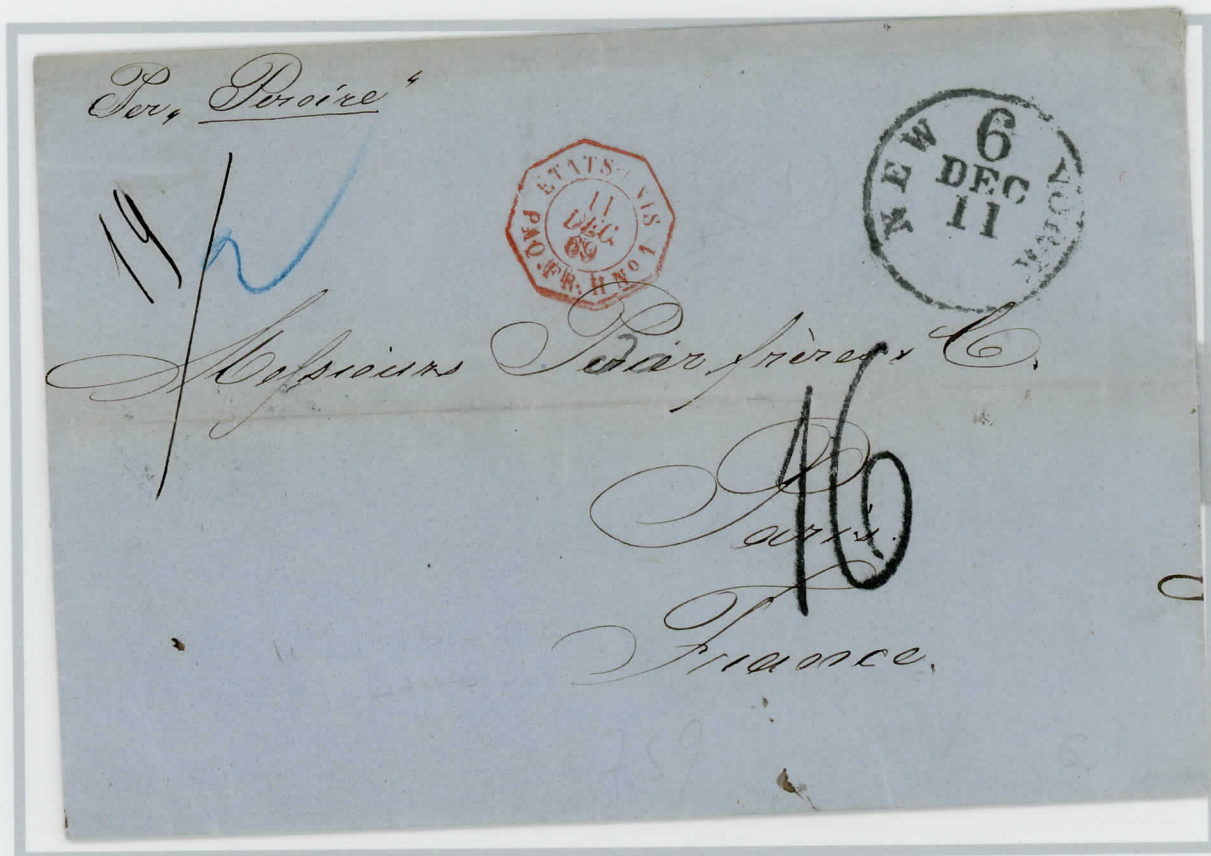 Per „ Pereire “
19
2
ETATS-UNIS
11
DEC.
69
PAQ. FR. H No 1
NEW YORK
6
DEC
11
Messieurs frères & C.
16
Paris.
France.